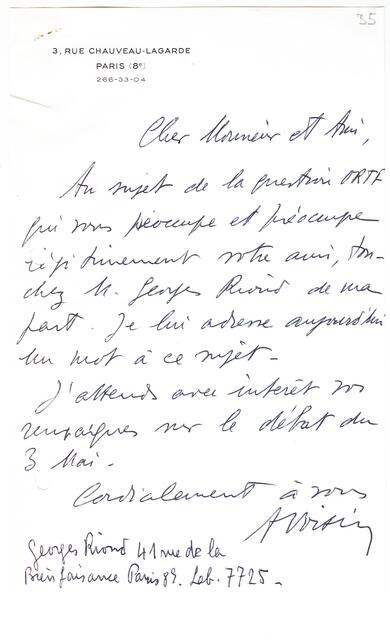 35
3, RUE CHAUVEAU-LAGARDE
PARIS (8e)
266-33-04
Cher Monsieur et Ami,
Au sujet de la question ORTF
qui vous préoccupe et préoccupe
légitimement votre ami, tou-
chez M. Georges Riond de ma
part. Je lui adresse aujourd'hui
un mot à ce sujet-
J'attends avec intérêt vos
remarques sur le débat du
3 Mai-
Cordialement à vous
AVoisin
Georges Riond 41 rue de la
Bienfaisance Paris 8e. Lab. 7725-